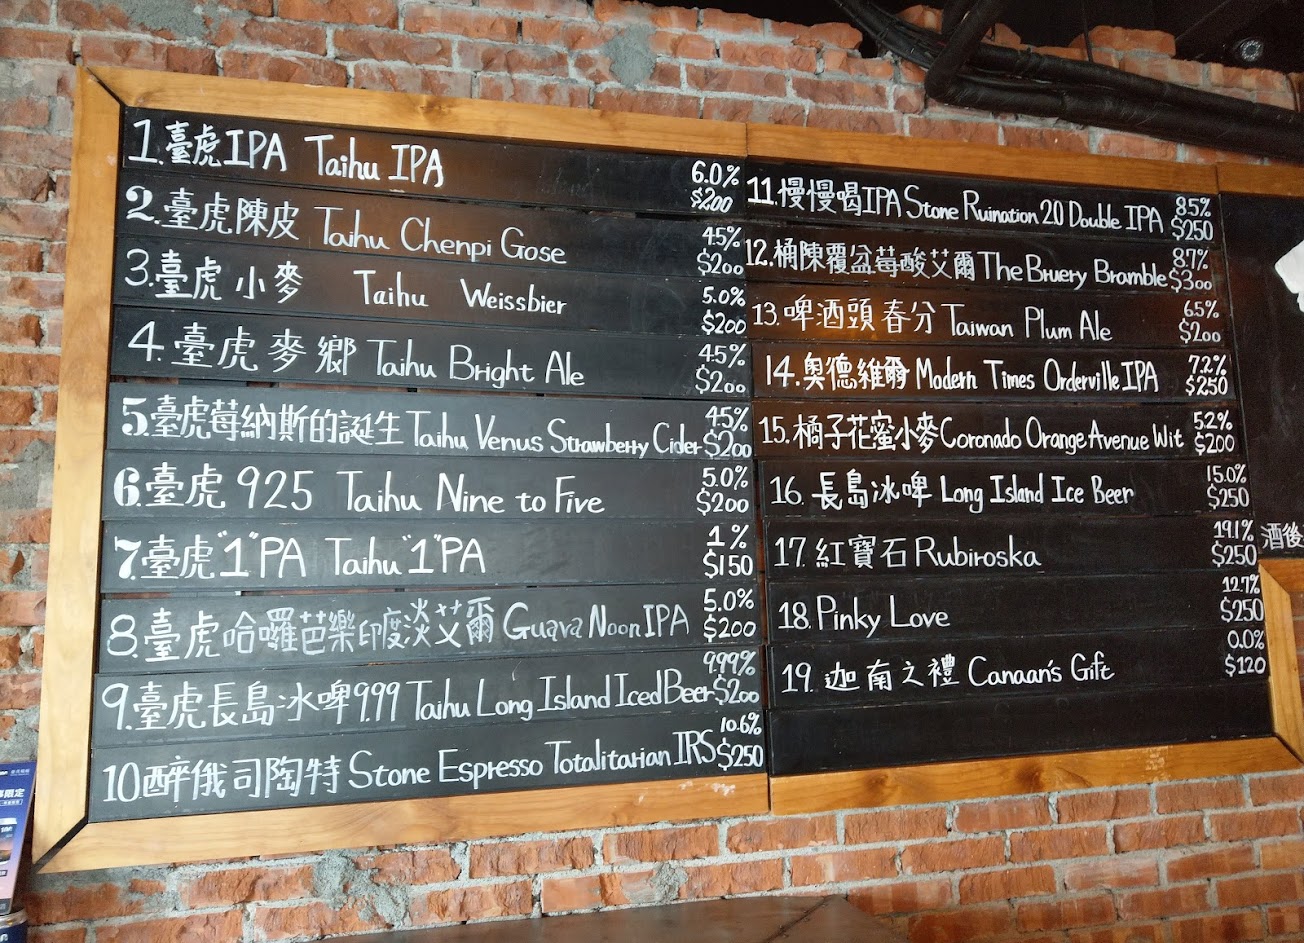 1.臺虎IPA Taihu IPA 6.0% $200
2.臺虎陳皮 Taihu Chenpi Gose 4.5% $200
3.臺虎小麥 Taihu Weissbier 5.0% $200
4.臺虎麥鄉 Taihu Bright Ale 4.5% $200
5.臺虎莓納斯的誕生 Taihu Venus Strawberry Cider 4.5% $200
6.臺虎 925 Taihu Nine to Five 5.0% $200
7.臺虎"1"PA Taihu "1"PA 1% $150
8.臺虎哈囉芭樂印度淡艾爾 Guava Noon IPA 5.0% $200
9.臺虎長島冰啤9.99 Taihu Long Island Iced Beer 9.99% $200
10 醉俄司陶特 Stone Espresso Totalitarian IRS 10.6% $250
11.慢慢喝IPA Stone Ruination 2.0 Double IPA 8.5% $250
12.桶陳覆盆莓酸艾爾 The Bruery Bramble 8.7% $300
13.啤酒頭 春分 Taiwan Plum Ale 6.5% $200
14.奧德維爾 Modern Times Orderville IPA 7.2% $250
15.橘子花蜜小麥 Coronado Orange Avenue Wit 5.2% $200
16.長島冰啤 Long Island Ice Beer 15.0% $250
17.紅寶石 Rubiroska 19.1% $250
18.Pinky Love 12.7% $250
19.迦南之禮 Canaan's Gift 0.0% $120
酒後
限定